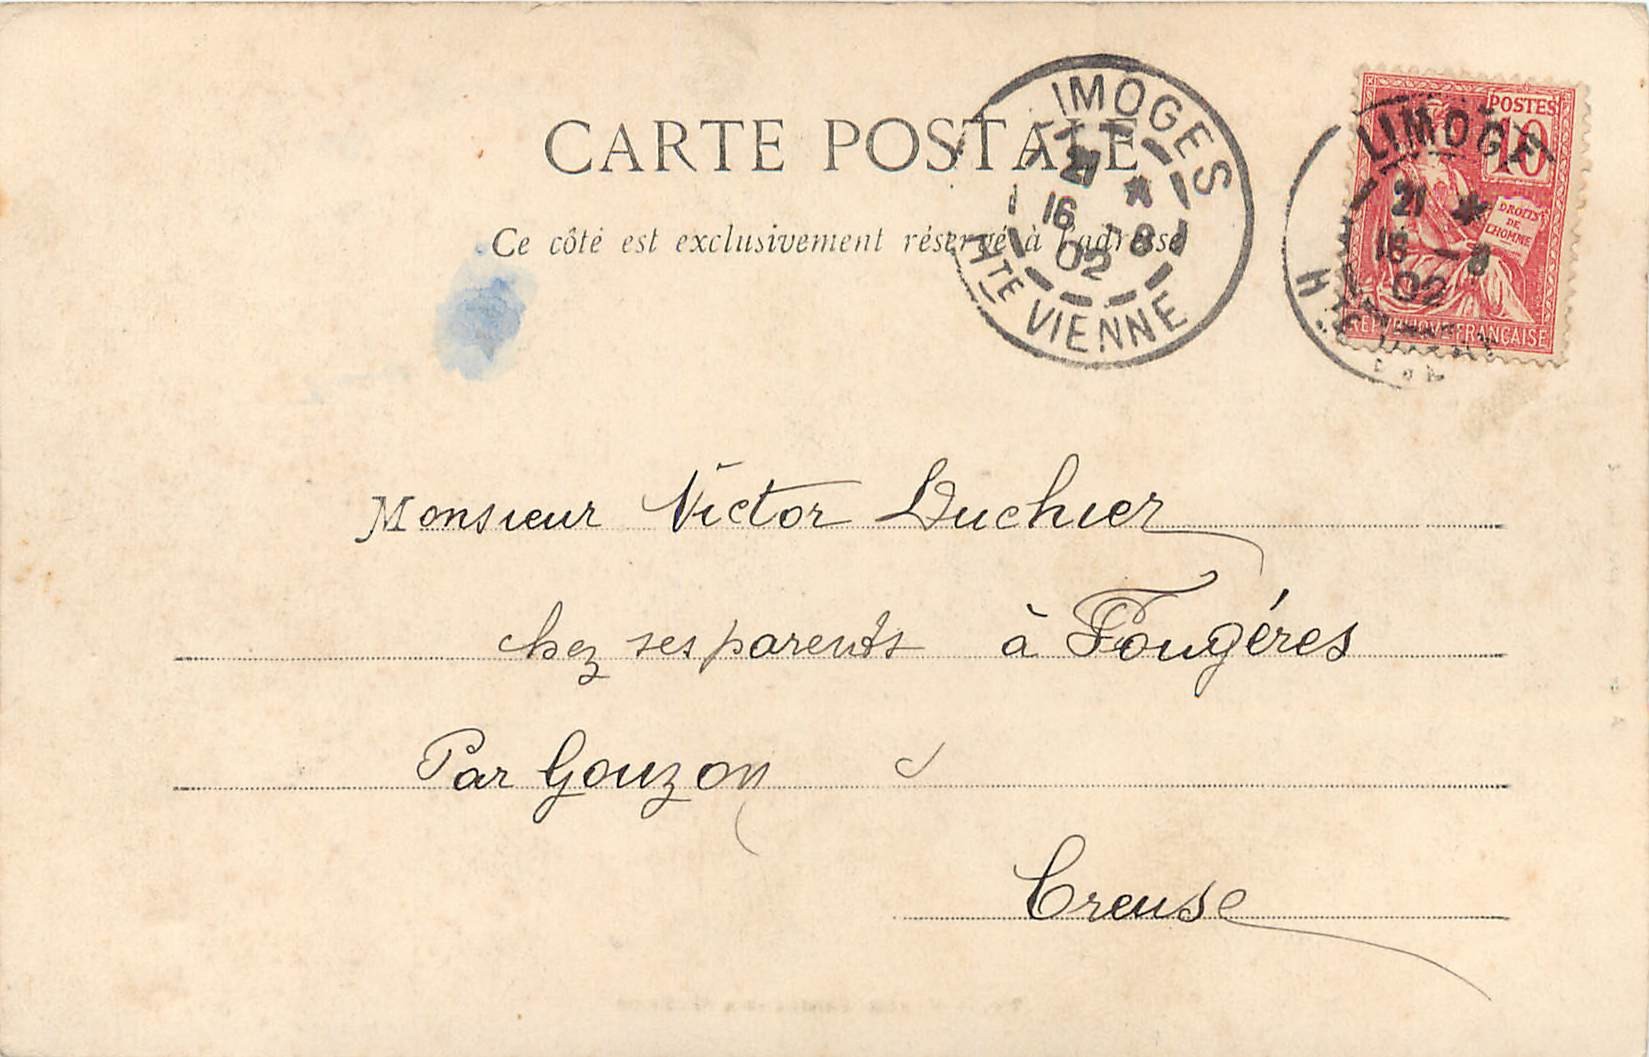 CARTE POSTALE
Ce côté est exclusivement réservé à l'adresse
LIMOGES
21 *
16 -8
02
HTE VIENNE
POSTES
10
DROITS
DE
L'HOMME
REPUBLIQUE FRANÇAISE
LIMOGE
21 *
16 -8
02
HTE VIENNE
Monsieur Victor Duchier
chez ses parents à Fougéres
Par Gouzon
Creuse